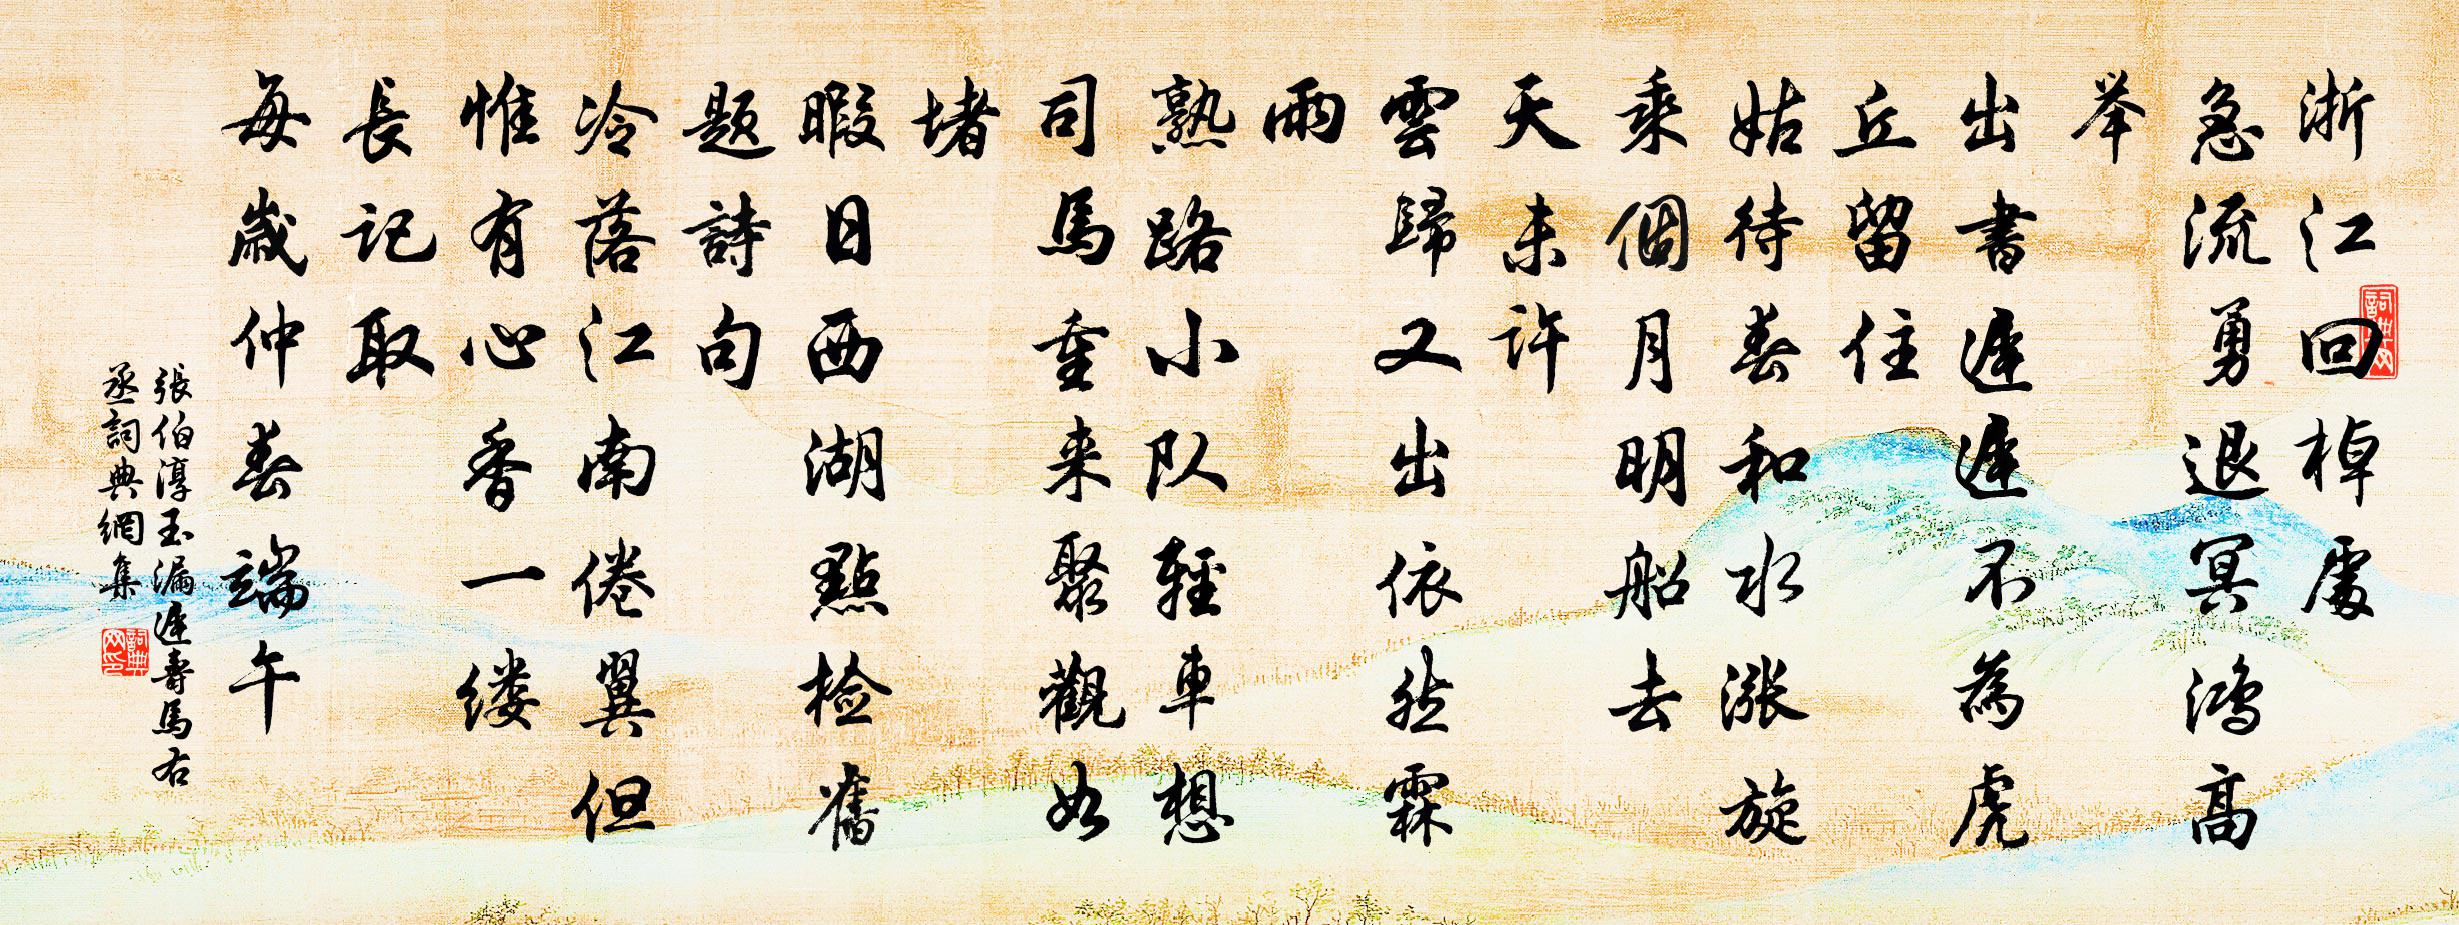 浙江回棹處
急流勇退冥鴻高
举
出書遲遲不為虎
丘留住
姑待春和水漲旋
乘個月明船去
天未許
雲歸又出依然霖
雨
熟路小队輕車想
司馬重来聚觀如
堵
暇日西湖點检舊
题詩句
冷落江南倦翼但
惟有心香一缕
長記取
每歲仲春端午
張伯淳玉漏遲壽馬右
丞詞典網集
詞典网
詞典网印